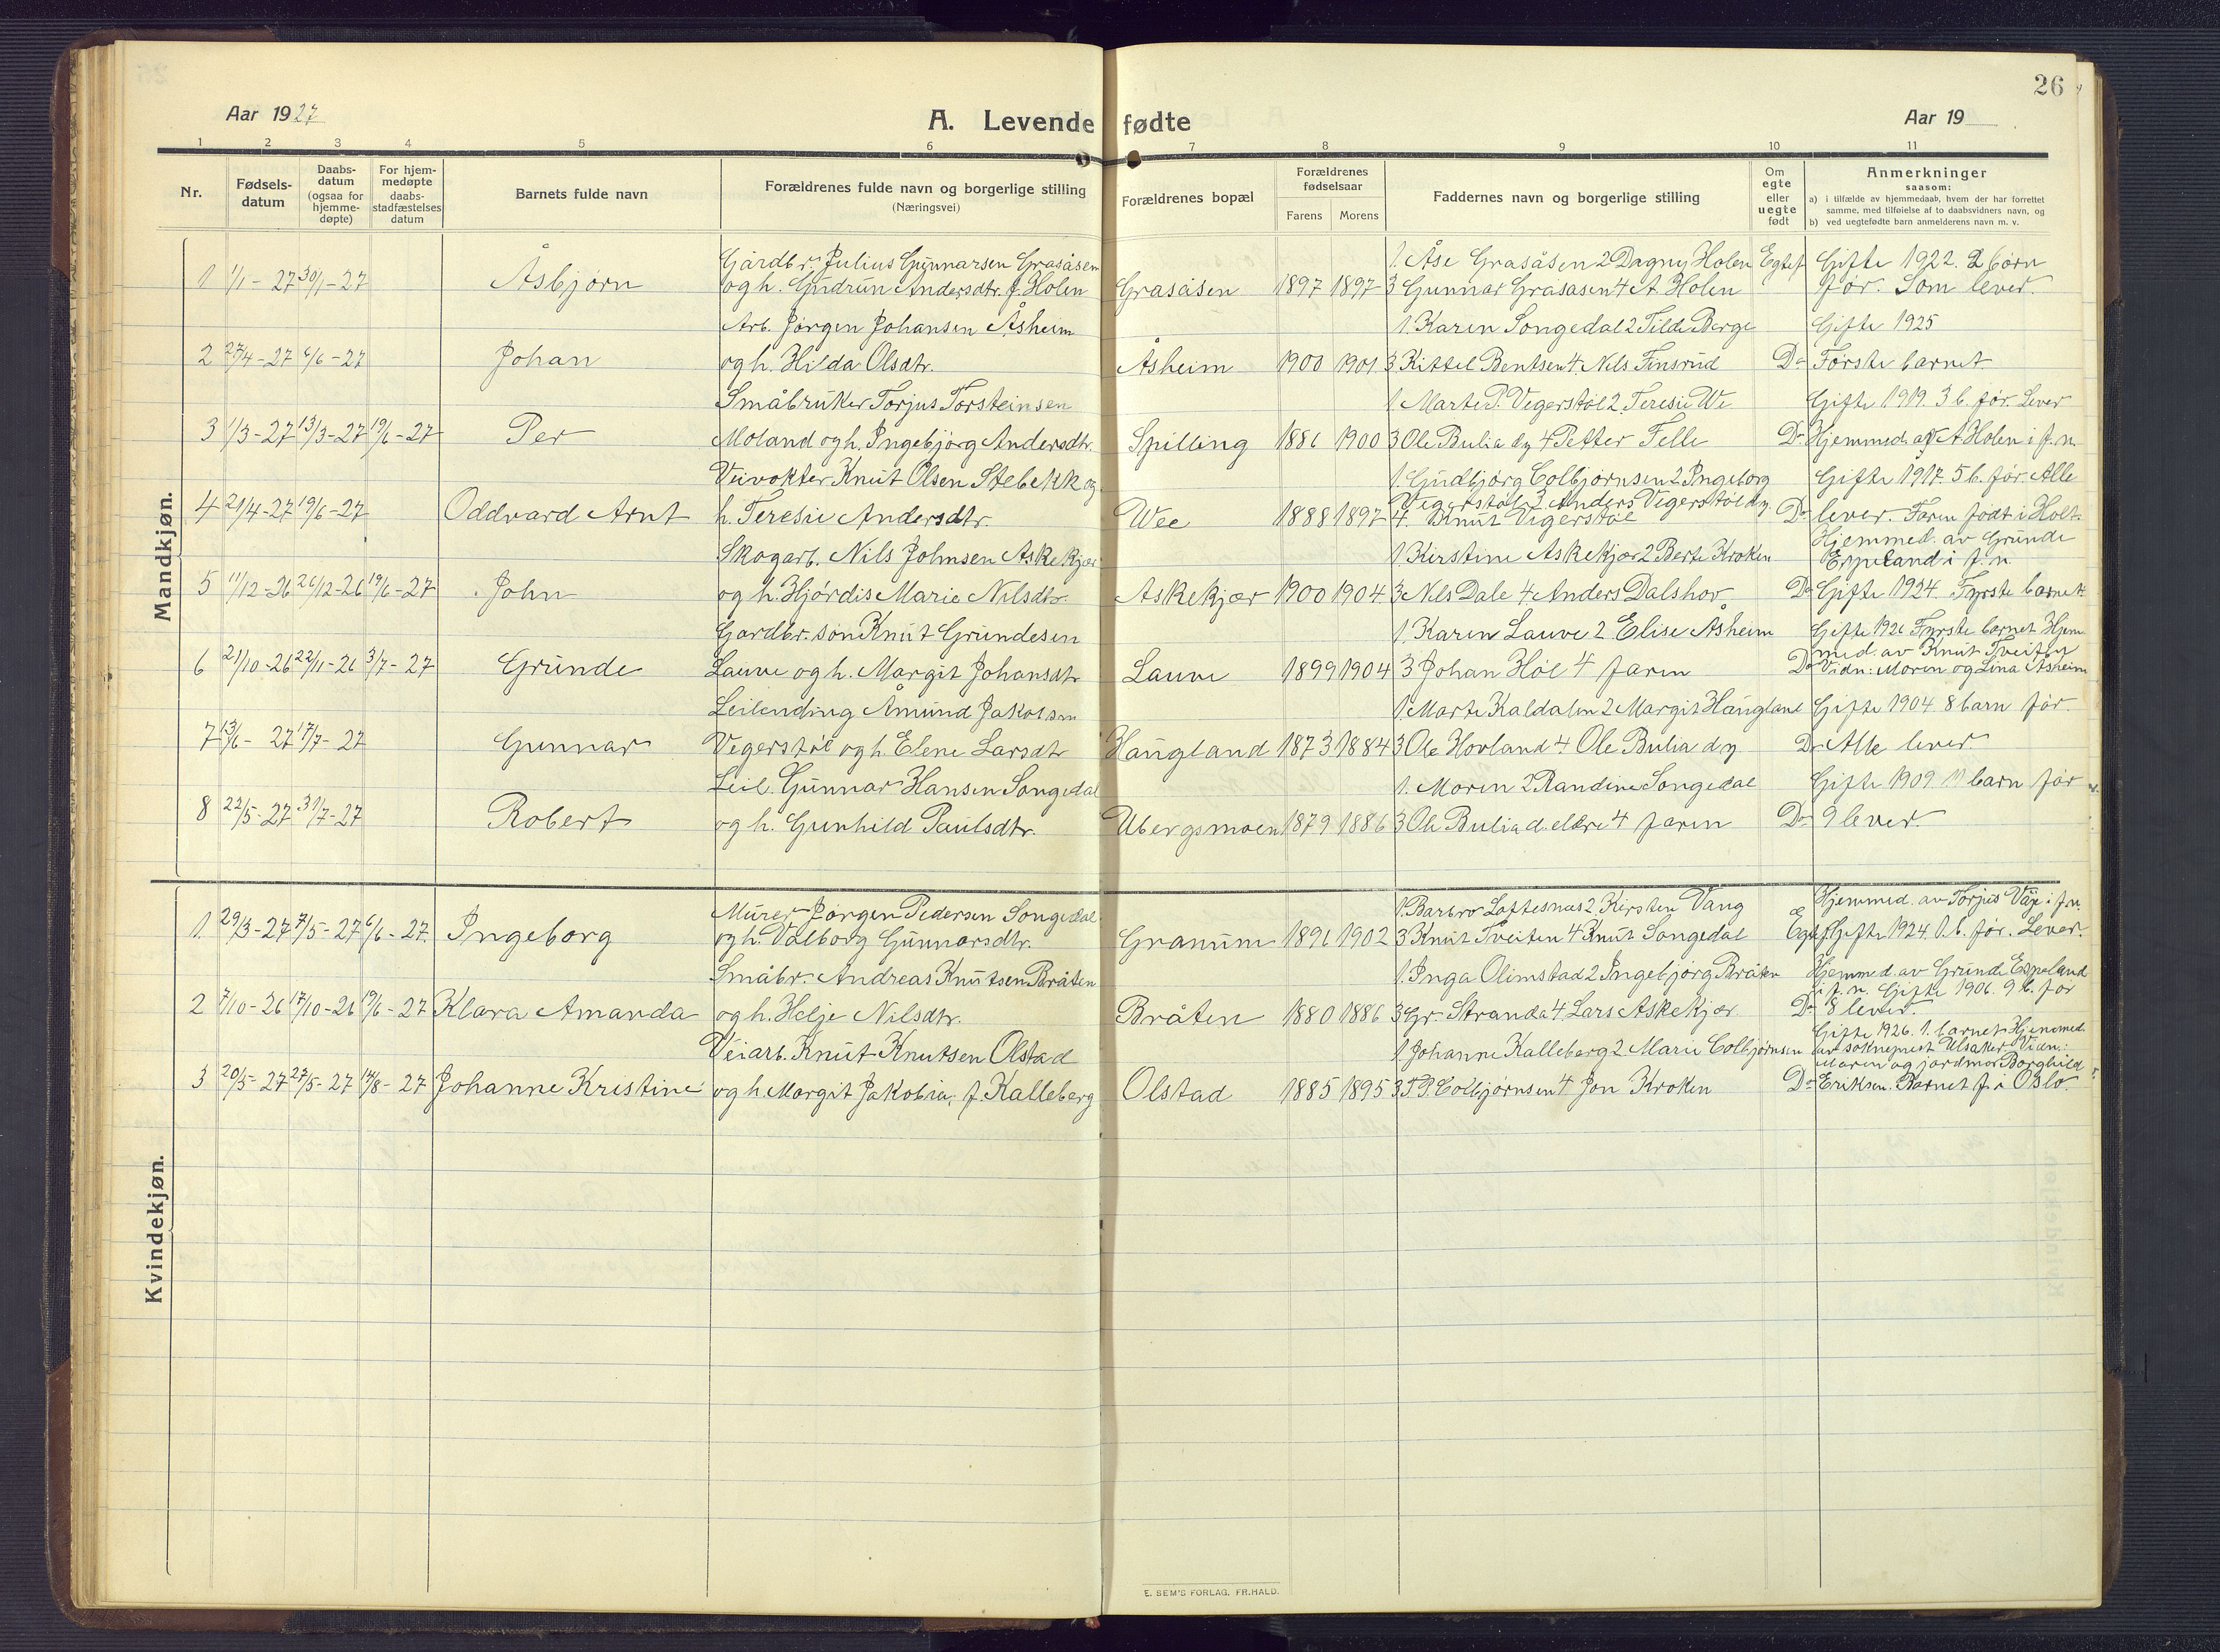 26
Aar 1927
A. Levende fødte
Aar 19
1 2 3 4 5 6 7 8 9 10 11
Nr.
Fødsels-
datum
Daabs-
datum
(ogsaa for
hjemme-
døpte)
For hjem-
medøpte
daabs-
stadfæstelses
datum
Barnets fulde navn
Forældrenes fulde navn og borgerlige stilling
(Næringsvei)
Forældrenes bopæl
Forældrenes
fødselsaar
Farens Morens
Faddernes navn og borgerlige stilling
Om
egte
eller
uegte
født
Anmerkninger
saasom:
a) i tilfælde av hjemmedaab, hvem der har forrettet
samme, med tilføielse af to daabsvidners navn, og
b) ved uegtefødte barn anmelderens navn m. v.
Mandkjøn.
Gårdbr. Julius Gunnarsen Grasåsen 1. Åse Grasåsen 2 Dagny Holen Egtef Gifte 1922. 2 børn
1 1/1-27 30/1-27 Asbjørn og h. Gudrun Andersdtr. f. Holen Grasåsen 1897 1897 3 Gunnar Grasåsen 4 A. Holen før. Som lever.
Arb. Jørgen Johansen Åsheim 1. Karen Songedal 2 Tilde Berge Gifte 1925
2 27/4-27 6/6-27 Johan og h. Hilda Olsdtr. Åsheim 1900 1901 3 Kittel Bentsen 4 Nils Finsrud Do Første barnet
Småbruker Torjus Torsteinsen 1. Marte P. Vegerstøl 2 Teresie We Gifte 1919. 3 b. før. Lever
3 1/3-27 13/3-27 19/6-27 Per Moland og h. Ingebjørg Andersdtr. Spilling 1886 1900 3 Ole Bulia dy 4 Petter Felle Do Hjemmed. af A. Holen i f. n.
Veivokter Knut Olsen Stebekk og 1. Gudbjørg Colbjørnsen 2 Ingeborg Gifte 1917. 5 b. før. Alle
4 21/4-27 19/6-27 Oddvard Arnt h. Teresie Andersdtr. Wee 1888 1897 Vegerstøl 3 Anders Vegerstøl d.y. 4. Knut Vigerstøl Do lever. Faren født i Holt.
Skogarb. Nils Johnsen Askekjær 1. Kirstine Askekjær 2 Berte Kroken Hjemmed. av Grunde Espeland i f. n.
5 11/12-26 26/12-26 19/6-27 John og h. Hjørdis Marie Nilsdtr. Askekjær 1900 1904 3 Nils Dale 4 Anders Dalshov Do Gifte 1924. Første barnet
Gardbr. søn Knut Grundesen 1. Karen Lauve 2 Elise Åsheim Gifte 1926 Første barnet Hjem
6 21/10-26 22/11-26 3/7-27 Grunde Lauve og h. Margit Johansdtr Lauve 1899 1904 3 Johan Høl 4 faren Do med av Knut Tveiten Vidn: Moren og Lina Åsheim
Leilending Åmund Jakobsen 1. Marte Kaldalen 2 Margit Haugland Gifte 1904. 8 barn før.
7 13/6-27 17/7-27 Gunnar Vegerstøl og h. Elene Larsdtr Haugland 1873 1884 3 Ole Hovland 4. Ole Bulia d.y. Do Alle lever.
Leil. Gunnar Hansen Songedal 1. Moren 2 Randine Songedal Gifte 1909 11 barn før
8 22/5-27 31/7-27 Robert og h. Gunhild Paulsdtr. Ubergsmoen 1879 1886 3 Ole Bulia d. eldre 4 faren Do 9 lever.
Kvindekjøn.
Murer Jørgen Pedersen Songedal 1. Barbro Løftesnes 2 Kirsten Vang Hjemmed. av Torjus Våje i f. n.
1. 29/3-27 7/5-27 6/6-27. Ingeborg og h. Valborg Gunnarsdtr. Granum 1891 1902 3 Knut Tveiten 4 Knut Songedal Egtef. Gifte 1924. 1 b. før. Lever.
Småbr. Andreas Knutsen Bråten 1. Inga Olimstad 2 Ingebjørg Bråten Hjemmed. av Grunde Espeland
2 7/10-26 17/10-26 19/6-27 Klara Amanda og h. Helje Nilsdtr. Bråten 1880 1886 3 Gr. Stranda 4 Lars Askekjær Do i f. n. Gifte 1906. 9 b. før 8 lever.
Veiarb. Knut Knutsen Olstad 1. Johanne Kalleberg 2 Marie Colbjørnsen Gifte 1926. 1. barnet Hjemmed. av sokneprest Ulsaker. Vidn.:
3 20/5-27 27/5-27 14/8-27 Johanne Kristine og h. Margit Jakobia, f. Kalleberg Olstad 1885 1895 3 T. P. Colbjørnsen 4 Jon Kroken Do Maren og jordmor Borghild Eriksen. Barnet f. i Oslo.
E. SEM'S FORLAG, FR.HALD.